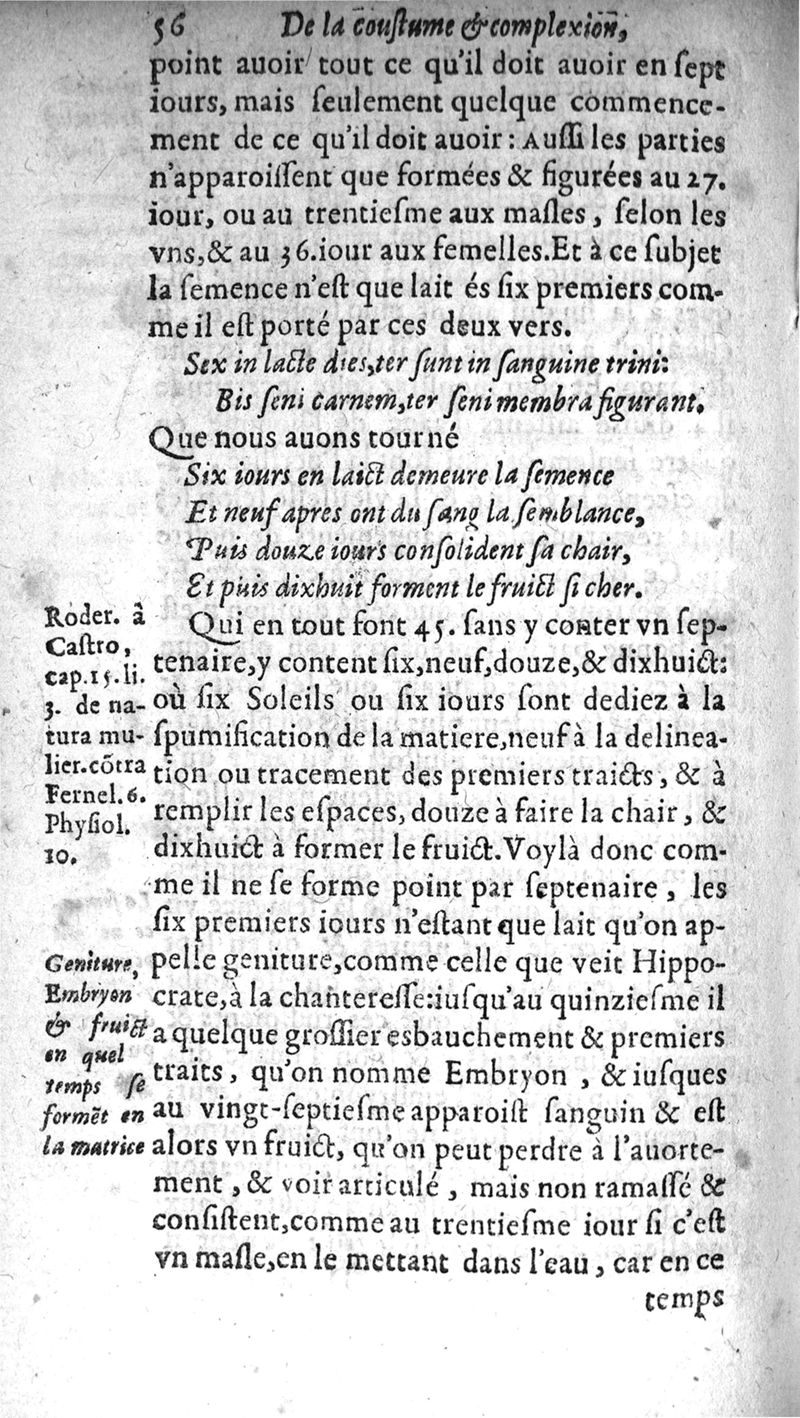 56 De la coustume & complexion,
point auoir tout ce qu'il doit auoir en ſept
iours, mais ſeulement quelque commence-
ment de ce qu'il doit auoir : Auſſi les parties
n'apparoiſſent que formées & figurées au 27.
iour, ou au trentieſme aux maſles, ſelon les
vns, & au 36. iour aux femelles. Et à ce ſubjet
la ſemence n'eſt que lait és ſix premiers com-
me il eſt porté par ces deux vers.
Sex in lacte dies, ter ſunt in ſanguine trini:
Bis ſeni carnem, ter ſeni membra figurant.
Que nous auons tourné
Six iours en laict demeure la ſemence
Et neuf apres ont du ſang la ſemblance,
Puis douze iours conſolident ſa chair,
Et puis dixhuit forment le fruict ſi cher.
Qui en tout font 45. ſans y conter vn ſep-
tenaire, y content ſix, neuf, douze, & dixhuict:
où ſix Soleils ou ſix iours ſont dediez à la
ſpumification de la matiere, neuf à la delinea-
tion ou tracement des premiers traicts, & à
remplir les eſpaces, douze à faire la chair, &
dixhuict à former le fruict. Voylà donc com-
me il ne ſe forme point par ſeptenaire, les
ſix premiers iours n'eſtant que lait qu'on ap-
pelle geniture, comme celle que veit Hippo-
crate, à la chantereſſe: iuſqu'au quinzieſme il
a quelque groſſier esbauchement & premiers
traits, qu'on nomme Embryon, & iuſques
au vingt-ſeptieſme apparoiſt ſanguin & eſt
alors vn fruict, qu'on peut perdre à l'auorte-
ment, & voir articulé, mais non ramaſſé &
conſiſtent, comme au trentieſme iour ſi c'eſt
vn maſle, en le mettant dans l'eau, car en ce
temps
Roder. â
Caſtro,
cap. 15. li.
3. de na-
tura mu-
lier. cõtra
Fernel. 6.
Phyſiol.
10.
Geniture,
Embryon
& fruict
en quel
temps ſe
formẽt en
la matrice